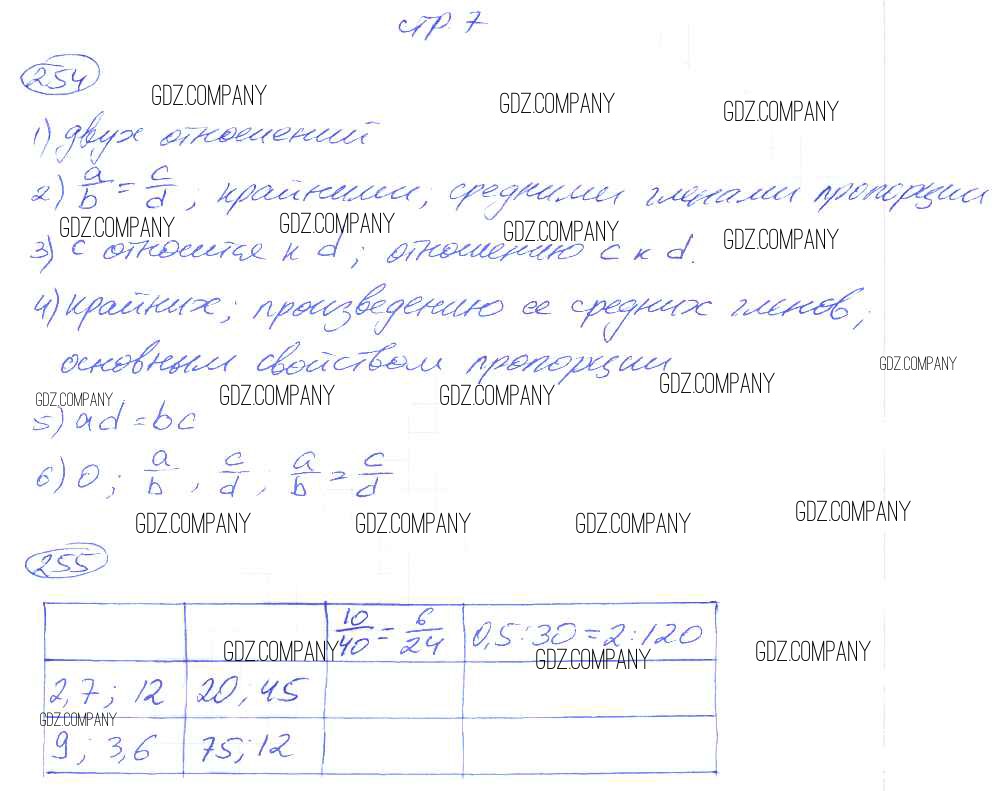 стр. 7
254
GDZ.COMPANY GDZ.COMPANY GDZ.COMPANY
1) двух отношений
2) a/b = c/d ; крайними; средними членами пропорции
GDZ.COMPANY GDZ.COMPANY GDZ.COMPANY GDZ.COMPANY
3) c относится к d; отношению c к d.
4) крайних; произведению ее средних членов;
основным свойством пропорции
GDZ.COMPANY
GDZ.COMPANY GDZ.COMPANY GDZ.COMPANY GDZ.COMPANY
5) ad = bc
6) 0; a/b , c/d , a/b = c/d
GDZ.COMPANY GDZ.COMPANY GDZ.COMPANY GDZ.COMPANY
255
10/40 = 6/24 0,5:30 = 2:120
GDZ.COMPANY GDZ.COMPANY GDZ.COMPANY
2,7; 12 20; 45
GDZ.COMPANY
9; 3,6 75; 12